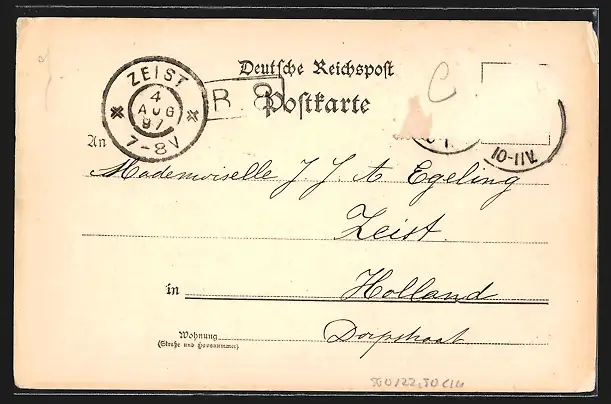 Deutsche Reichspost
ZEIST
4
AUG
97
7-8V
R. 8
Postkarte
10-11V
An
Mademoiselle J. J. A Egeling
Zeist.
in Holland
Wohnung Dorpstraat
(Straße und Hausnummer)